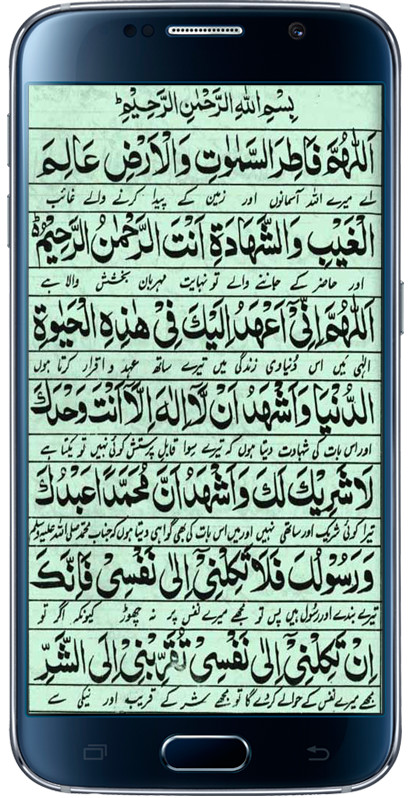 بِسْمِ اللهِ الرَّحْمٰنِ الرَّحِيْمِ
اَللّٰهُمَّ فَاطِرَ السَّمٰوٰتِ وَالْاَرْضِ عَالِمَ
اے میرے اللہ آسمانوں اور زمین کے پیدا کرنے والے غائب
الْغَيْبِ وَالشَّهَادَةِ اَنْتَ الرَّحْمٰنُ الرَّحِيْمُ
اور حاضر کے جاننے والے تو نہایت مہربان بخشش والا ہے
اَللّٰهُمَّ اِنِّيْٓ اَعْهَدُ اِلَيْكَ فِيْ هٰذِهِ الْحَيٰوةِ
الٰہی میں اس دنیاوی زندگی میں تیرے ساتھ عہد و اقرار کرتا ہوں
الدُّنْيَا وَاَشْهَدُ اَنْ لَّآ اِلٰهَ اِلَّآ اَنْتَ وَحْدَكَ
اور اس بات کی شہادت دیتا ہوں کہ تیرے سوا قابل پرستش کوئی نہیں تو یکتا ہے
لَاشَرِيْكَ لَكَ وَاَشْهَدُ اَنَّ مُحَمَّدًا عَبْدُكَ
تیرا کوئی شریک اور ساتھی نہیں اور میں اس بات کی بھی گواہی دیتا ہوں کہ جناب محمد صلی اللہ علیہ وسلم
وَرَسُوْلُكَ فَلَا تَكِلْنِيْٓ اِلٰى نَفْسِيْ فَاِنَّكَ
تیرے بندے اور رسول ہیں پس تو مجھے میرے نفس پر نہ چھوڑ کیونکہ اگر تو
اِنْ تَكِلْنِيْٓ اِلٰى نَفْسِيْ تُقَرِّبْنِيْٓ اِلَى الشَّرِّ
مجھے میرے نفس کے حوالے کر دے گا تو مجھے شر کے قریب اور نیکی سے